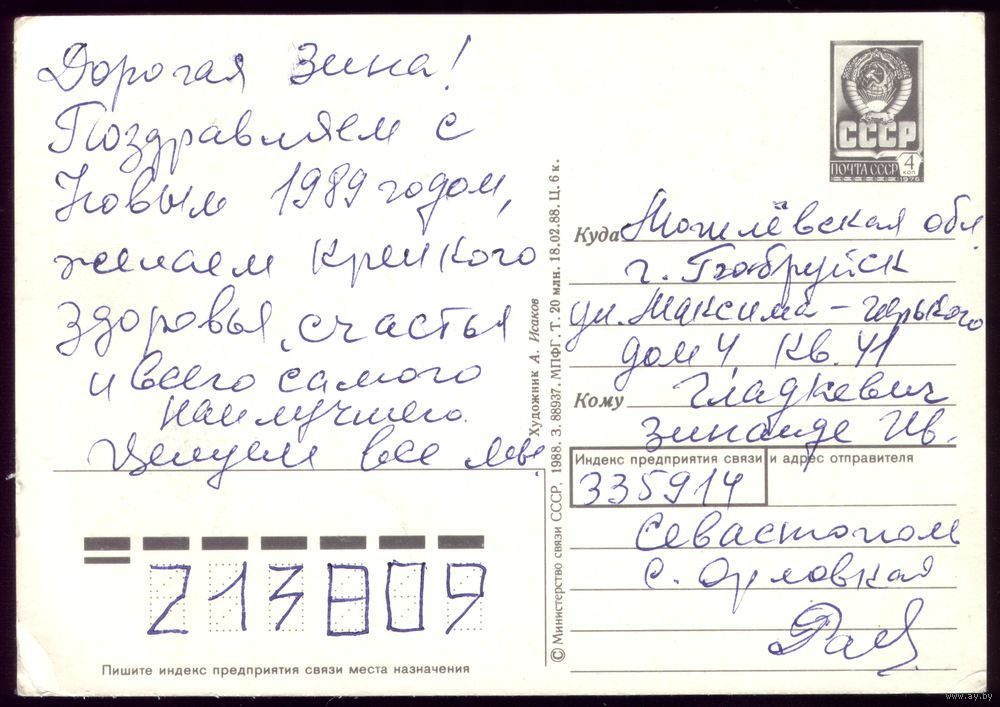 Дорогая Зина!
Поздравляем с
Новым 1989 годом,
желаем крепкого
здоровья, счастья
и всего самого
наилучшего.
Целуем все мы.
СССР
4 коп
ПОЧТА СССР
1976
Куда Могилёвская обл
г. Бобруйск
ул. Максима-Горького
дом 4 кв. 41
Кому Гладкевич
Зинаиде Ив.
Индекс предприятия связи и адрес отправителя
335914
Севастополь
с. Орловка
213809
Пишите индекс предприятия связи места назначения
Художник А. Исаков
© Министерство связи СССР, 1988. З. 88937. МПФГ. Т. 20 млн. 18.02.88. Ц. 6 к.
www.ay.by